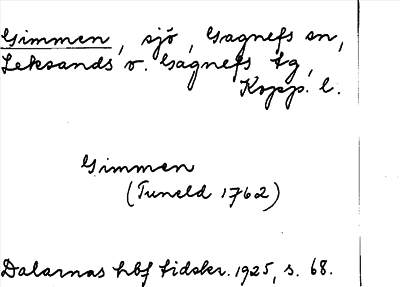 Gimmen, sjö, Gagnefs sn,
Leksands o. Gagnefs tg,
Kopp. l.
Gimmen
(Tuneld 1762)
Dalarnas hbf tidskr. 1925, s. 68.